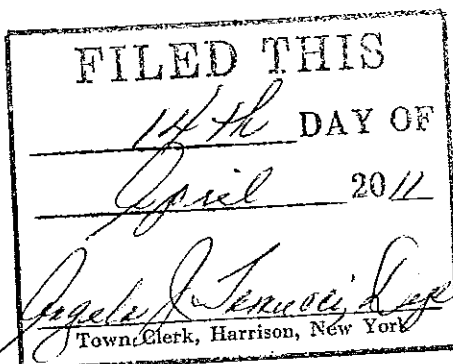 FILED THIS
14th DAY OF
April 2011
Angela J.
Town Clerk, Harrison, New York